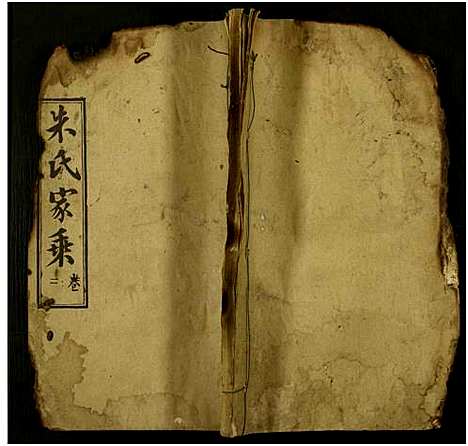 朱氏家乘
卷二